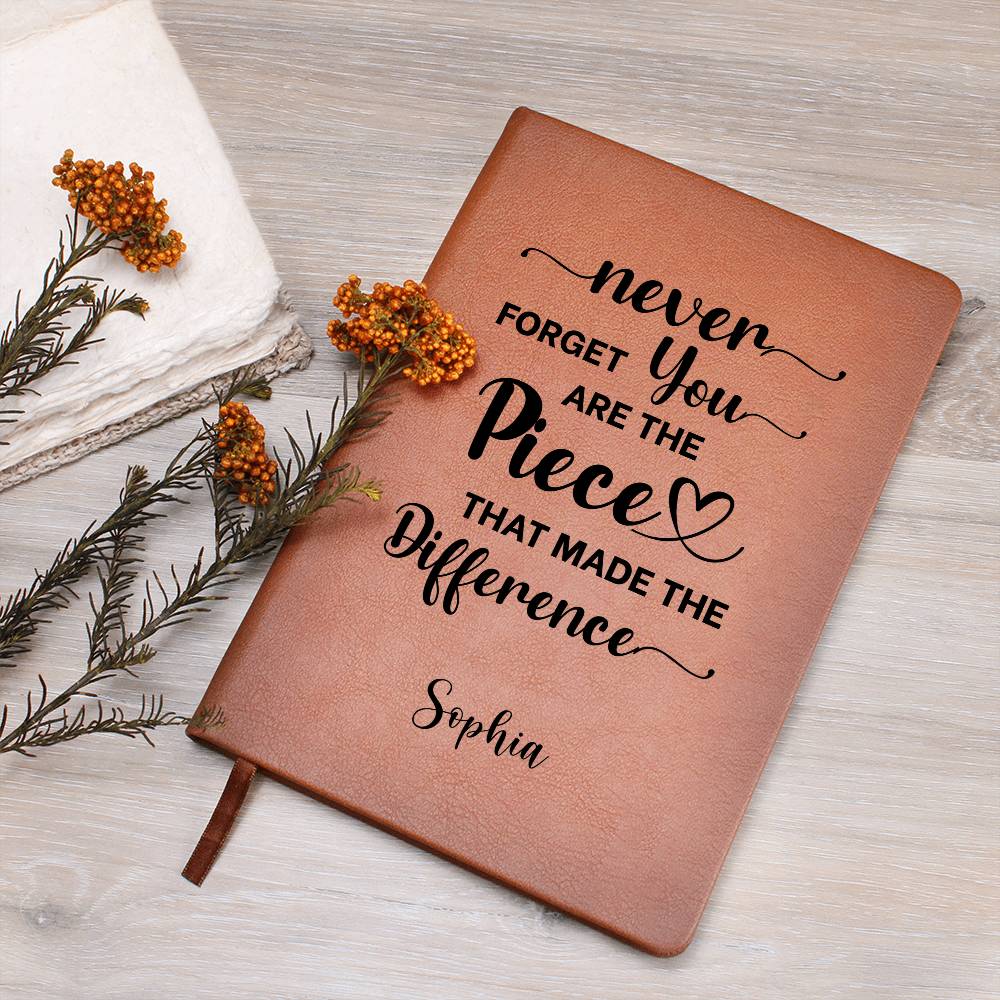 never
FORGET You
ARE THE
Piece
THAT MADE THE
Difference
Sophia